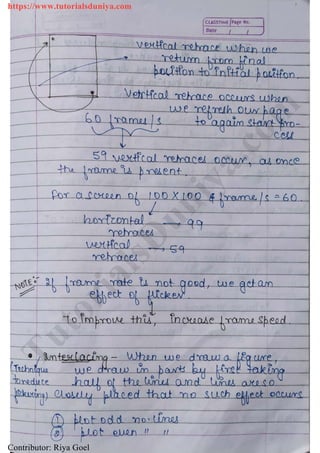 https://www.tutorialsduniya.com
Classtime Page No.
Date / /
vertical retrace when we
return from final
position to initial position.
Vertical retrace occurs when
we refresh our page
60 frames/s to again start pro-
cess
59 vertical retraces occur, as once
the frame is present.
for a screen of 100 X 100 & frame/s = 60.
horizontal → 99
retraces
vertical → 59
retraces
NOTE:- If frame rate is not good, we get an
effect of flicker
To improve this, increase frame speed.
• Interlacing - When we draw a figure,
(Technique we draw in part by first taking
to reduce half of the lines and lines are so
flickering) closely placed that no such effect occurs
① plot odd no. lines
② plot even " "
TutorialsDuniya.com
Contributor: Riya Goel